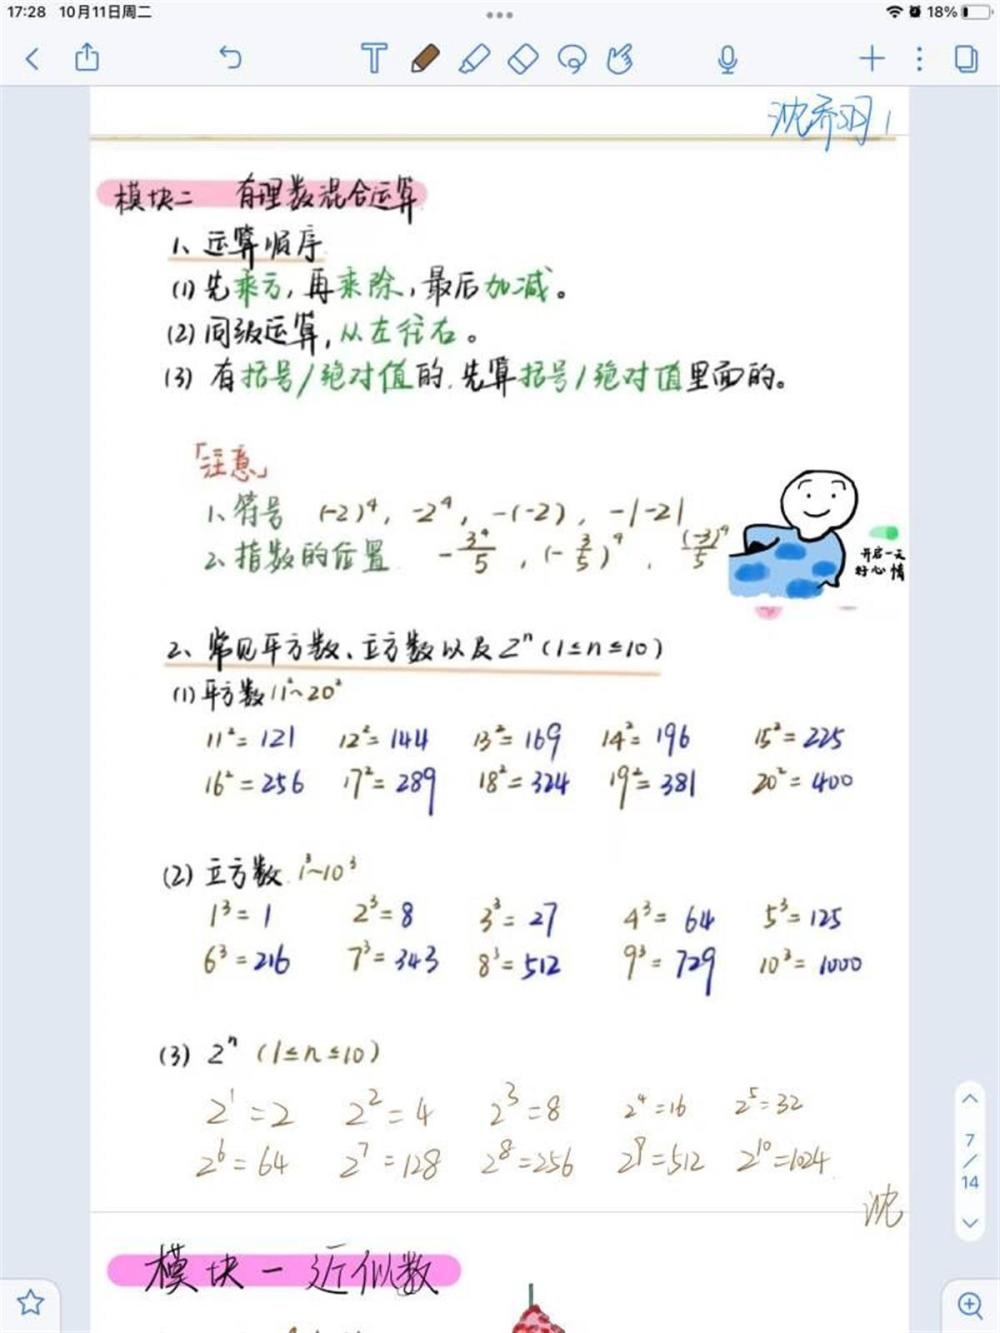 17:28 10月11日周二 18%
沈乔羽1
模块二 有理数混合运算
1、运算顺序
(1) 先乘方, 再乘除, 最后加减。
(2) 同级运算, 从左往右。
(3) 有括号/绝对值的, 先算括号/绝对值里面的。
「注意」
1、符号 (-2)⁴, -2⁴, -(-2), -|-2|
2、指数的位置 -3⁴/5, (-3/5)⁴, (-3)⁴/5
开启一天
好心情
2、常见平方数、立方数以及2ⁿ(1≤n≤10)
(1) 平方数11²~20²
11²=121 12²=144 13²=169 14²=196 15²=225
16²=256 17²=289 18²=324 19²=381 20²=400
(2) 立方数 1³~10³
1³=1 2³=8 3³=27 4³=64 5³=125
6³=216 7³=343 8³=512 9³=729 10³=1000
(3) 2ⁿ (1≤n≤10)
2¹=2 2²=4 2³=8 2⁴=16 2⁵=32
2⁶=64 2⁷=128 2⁸=256 2⁹=512 2¹⁰=1024
沈
7
/
14
模块一 近似数